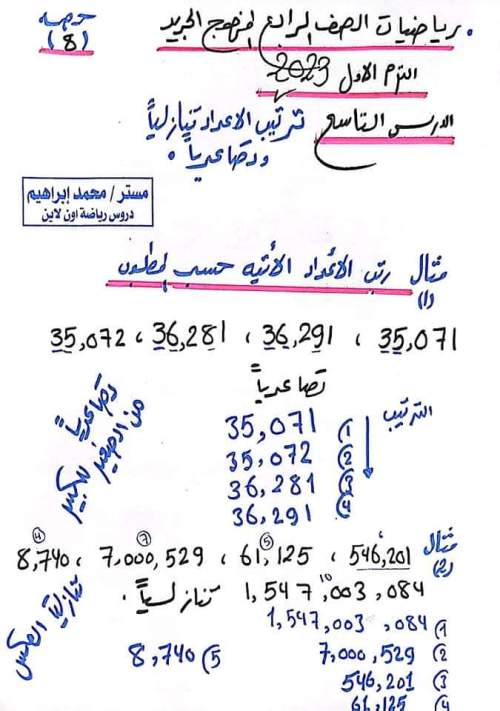 رياضيات الصف الرابع المنهج الجديد
حصه (8)
الترم الاول 2023
الدرس التاسع ترتيب الاعداد تنازلياً
وتصاعدياً .
مستر / محمد إبراهيم
دروس رياضة اون لاين
مثال (1) رتب الأعداد الأتيه حسب المطلوب
35,071 ، 36,291 ، 36,281 ، 35,072
تصاعدياً
الترتيب
1) 35,071
2) 35,072
3) 36,281
4) 36,291
تصاعدياً
من الصغير للكبير
مثال (2) 546,201 ، 61,125 ، 7,000,529 ، 8,740
6 5 7 4
1,547,003,084 تنازلياً .
10
1) 1,547,003,084
2) 7,000,529
3) 546,201
4) 61,125
5) 8,740
تنازلياً العكس